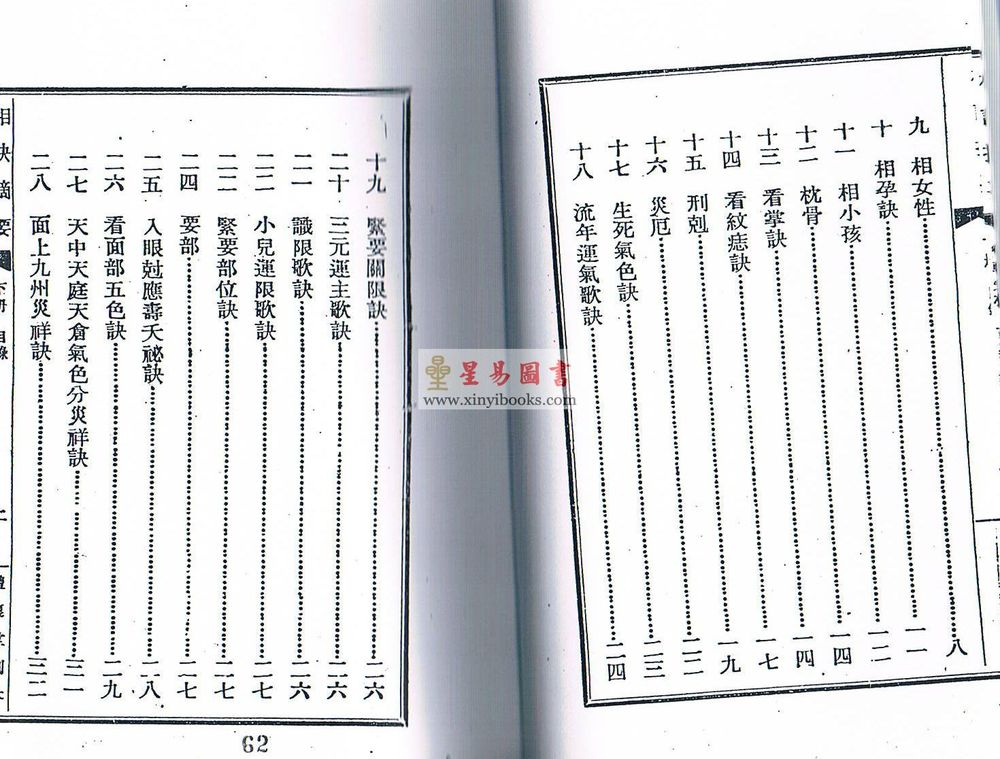 九 相女性 八
十 相孕訣 一一
十一 相小孩 一二
十二 枕骨 一四
十三 看掌訣 一四
十四 看紋痣訣 一七
十五 刑剋 一九
十六 災厄 二二
十七 生死氣色訣 二三
十八 流年運氣歌訣 二四
十九 緊要關限訣 二六
二十 三元運主歌訣 二六
二一 識限歌訣 二六
二二 小兒運限歌訣 二七
二三 緊要部位訣 二七
二四 要部 二七
二五 入眼尅應壽夭祕訣 二八
二六 看面部五色訣 二九
二七 天中天庭天倉氣色分災祥訣 三一
二八 面上九州災祥訣 三二
相訣摘要 下册 目錄 二
62
星易圖書
www.xinyibooks.com